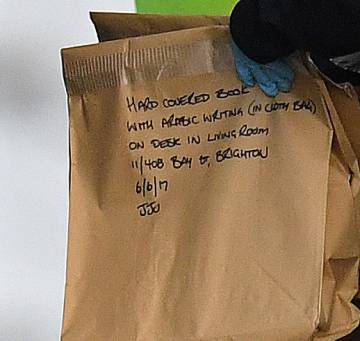 HARD COVERED BOOK
WITH ARABIC WRITING (IN CLOTH BAG)
ON DESK IN LIVING ROOM
11/408 BAY ST, BRIGHTON
6/6/17
JJJ